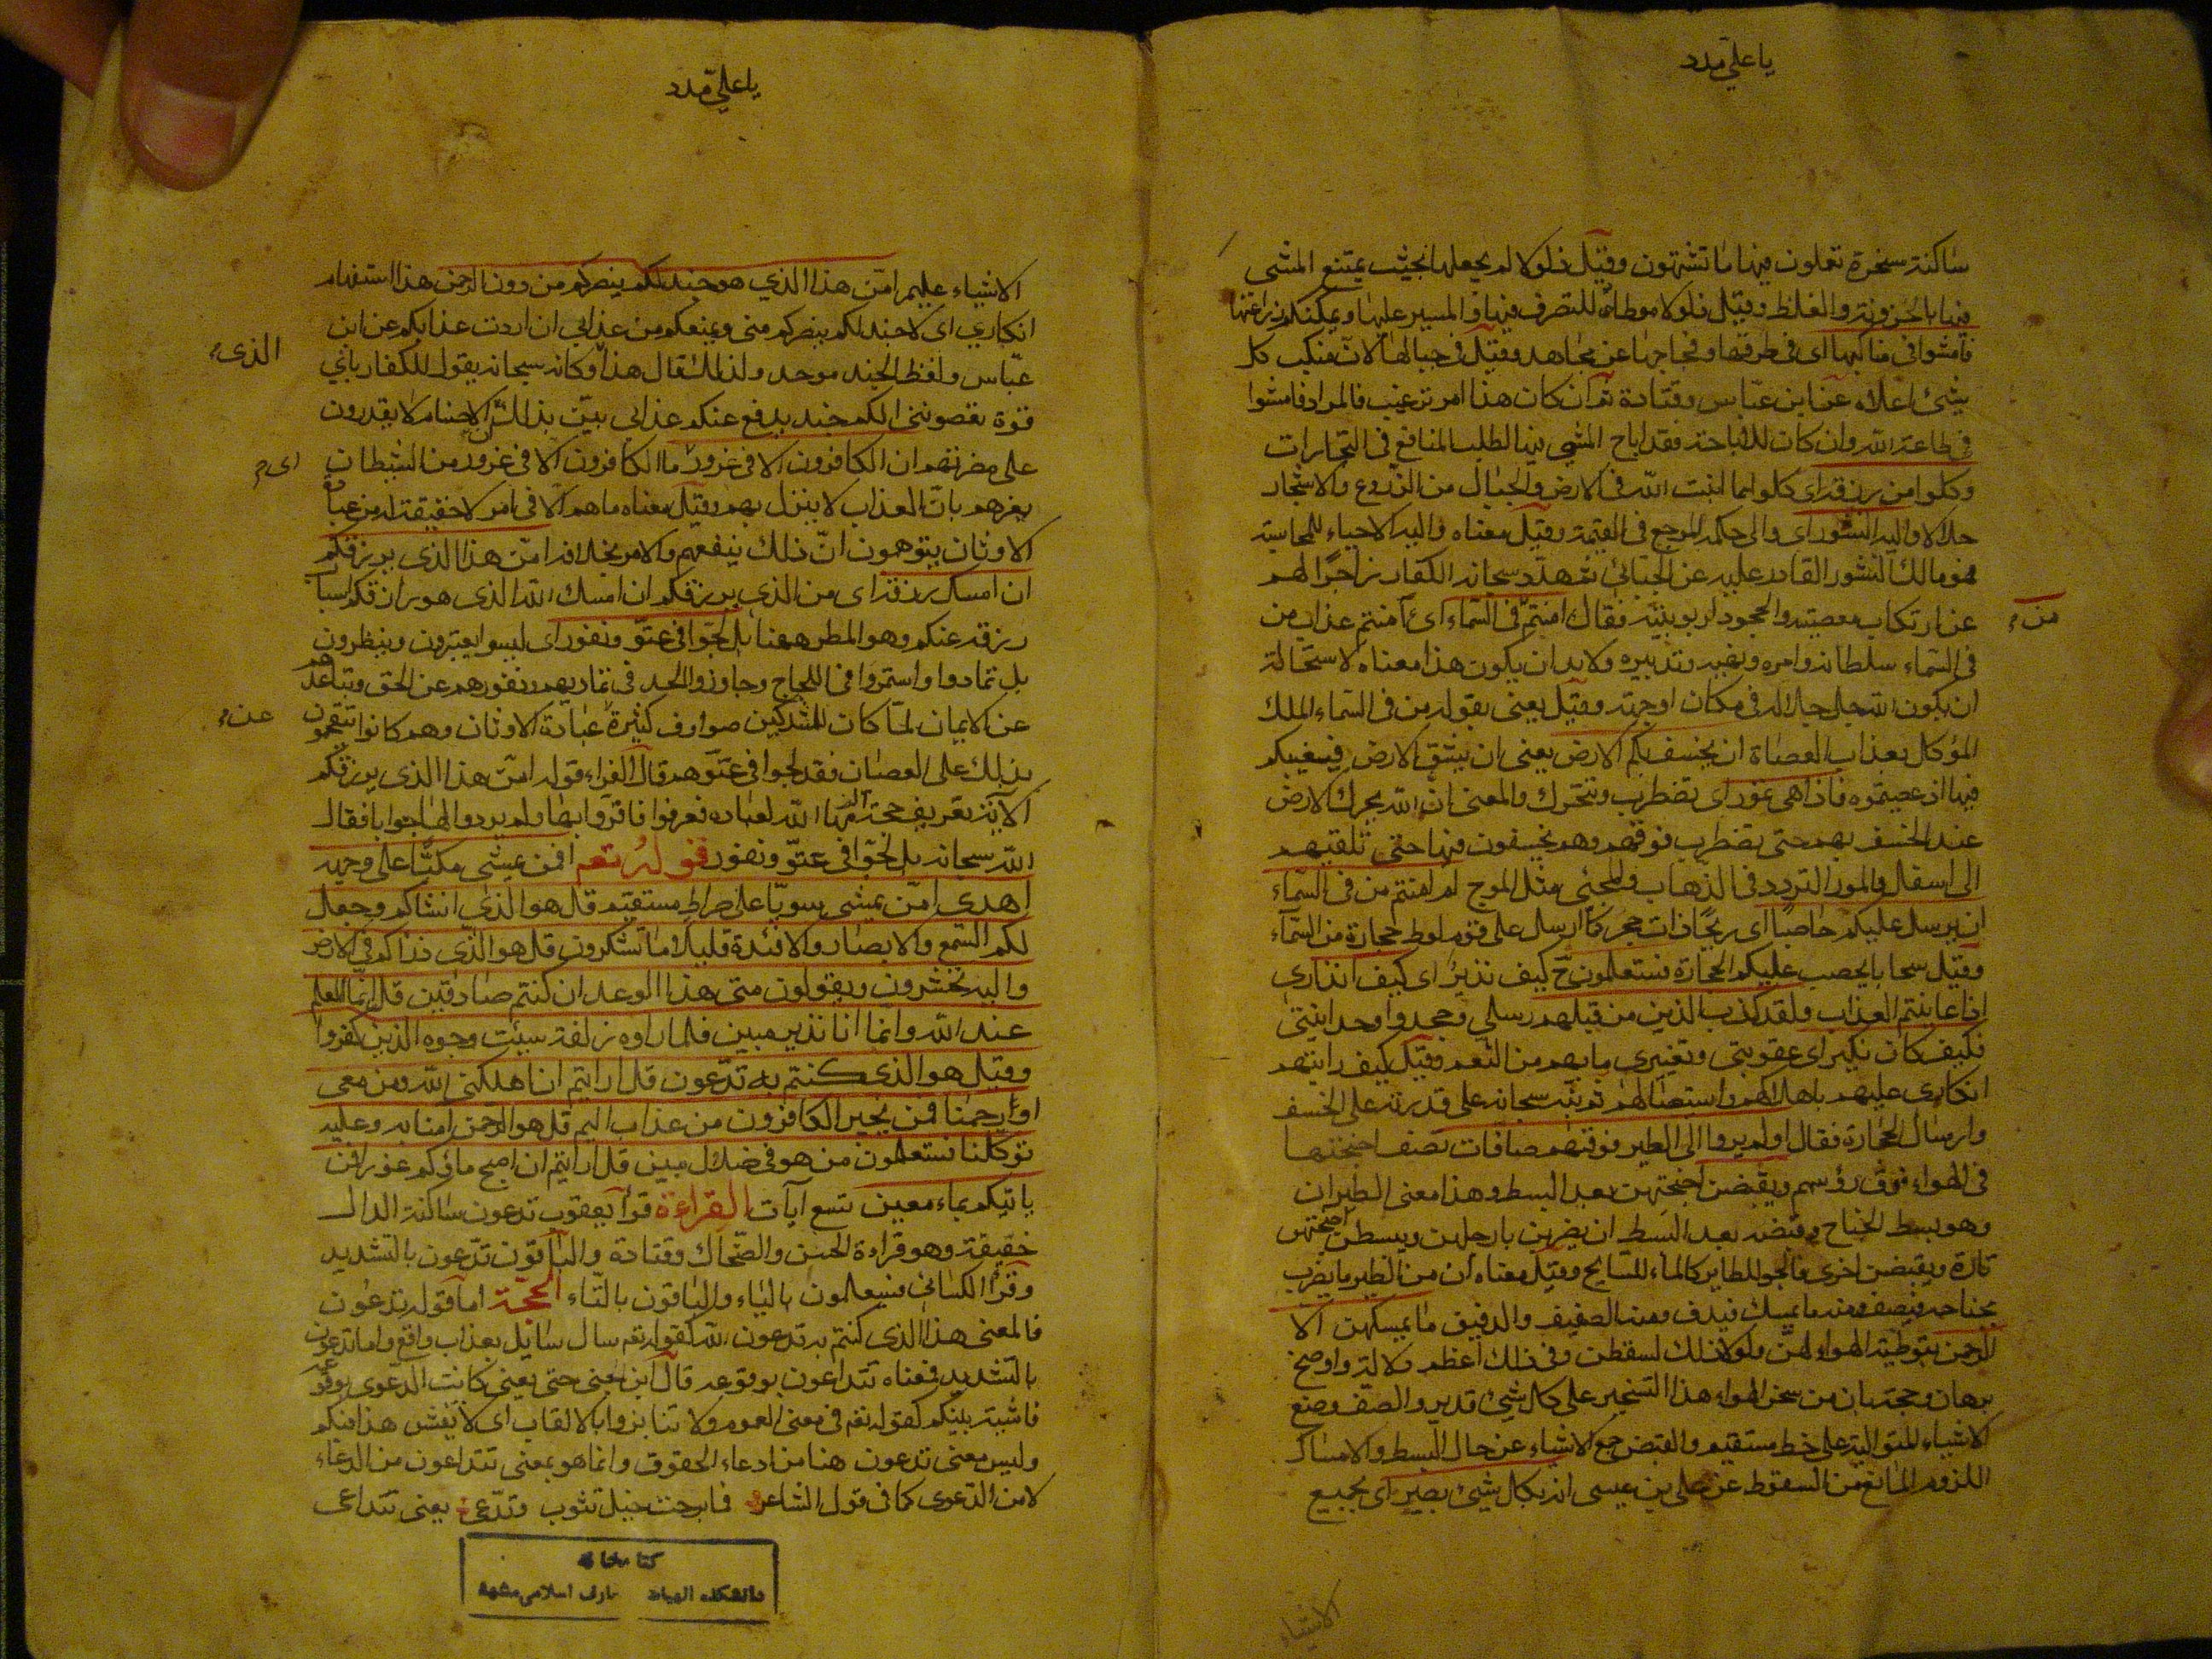 يا علي مدد
ساكنة مسخرة تعملون فيها ما تشتهون وقيل ذلولا لم يجعلها بحيث يمتنع المشي
فيها بالحزونة والغلظ وقيل ذلولا موطاة للتصرف فيها والمسير عليها ويمكنكم زراعتها
فامشوا في مناكبها اي في طرقها وفجاجها عن مجاهد وقيل في جبالها لان منكب كل
شيئ اعلاه عن ابن عباس وقتادة ثم ان كان هذا امر ترغيب فالمراد فامشوا
في طاعة الله وان كان للاباحة فقد اباح المشي فيها لطلب المنافع في التجارات
وكلوا من رزقه اي كلوا مما انبت الله في الارض والجبال من الزروع والاشجار
حلالا واليه النشور اي والى حكمه المرجع في القيمة وقيل معناه واليه الاحياء للمحاسبة
فهو مالك النشور القادر عليه عن الجبائي ثم هدد سبحانه الكفار زاجرا لهم
عن ارتكاب معصيته والجحود لربوبيته فقال ءامنتم في السماء اي ءامنتم عذاب من
من
في السماء سلطانه وامره ونهيه وتدبيره ولا بد ان يكون هذا معناه لاستحالة
ان يكون الله جل جلاله في مكان او جهة وقيل يعني بقوله من في السماء الملك
الموكل بعذاب العصاة ان يخسف بكم الارض يعني ان يشق الارض فيغيبكم
فيها اذ عصيتموه فاذا هي تمور اي تضطرب وتتحرك والمعنى ان الله يحرك الارض
عند الخسف بهم حتى تضطرب فوقهم وهم يخسفون فيها حتى تلقيهم
الى اسفل والمور التردد في الذهاب والمجئ مثل الموج ام امنتم من في السماء
ان يرسل عليكم حاصبا اي ريحا ذات حجر كما ارسل على قوم لوط حجارة من السماء
وقيل سحابا يحصب عليكم الحجارة فستعلمون ح كيف نذير اي كيف انذاري
اذا عاينتم العذاب ولقد كذب الذين من قبلهم رسلي وجحدوا وحدانيتي
فكيف كان نكير اي عقوبتي وتغييري ما بهم من النعم وقيل كيف رايتهم
انكاري عليهم باهلاكهم واستيصالهم ثم نبه سبحانه على قدرته على الخسف
وارسال الحجارة فقال اولم يروا الى الطير فوقهم صافات تصف اجنحتها
في الهواء فوق رؤسهم ويقبضن اجنحتهن بعد البسط وهذا معنى الطيران
وهو بسط الجناح وقبضه بعد البسط ان يضربن بارجلهن ويبسطن اجنحتهن
تارة ويقبضن اخرى فالجو للطاير كالماء للسابح وقيل معناه ان من الطير ما يضرب
بجناحه فيصف ومنه ما يمسك فيدف ومنه الصفيف والدفيف ما يمسكهن الا
الرحمن بتوطية الهواء لهن ولولا ذلك لسقطن وفي ذلك اعظم دلالة واوضح
برهان وحجة بان من سخر الهواء هذا التسخير على كل شيئ قدير والصف وضع
الاشياء المتوالية على خط مستقيم والقبض جمع الاشياء عن حال البسط والامساك
اللزوم المانع من السقوط عن علي بن عيسى انه بكل شيئ بصير اي بجميع
الاشياء
يا علي مدد
الاشياء عليم امن هذا الذي هو جند لكم ينصركم من دون الرحمن هذا استفهام
انكاري اي لا جند لكم ينصركم مني ويمنعكم من عذابي ان اردت عذابكم عن ابن
عباس ولفظ الجند موحد ولذلك قال هذا وكانه سبحانه يقول للكفار باي
الذي
قوة تعصونني الكم جند يدفع عنكم عذابي بين بذلك ان الاصنام لا يقدرون
على نصرتهم ان الكافرون الا في غرور ما الكافرون الا في غرور من الشيطان
اي
يغرهم بان العذاب لا ينزل بهم وقيل معناه ما هم الا في امر لا حقيقة له من عبادة
الاوثان يتوهمون ان ذلك ينفعهم والامر بخلافه امن هذا الذي يرزقكم
ان امسك رزقه اي من الذي يرزقكم ان امسك الله الذي هو رازقكم اسباب
رزقه عنكم وهو المطر ههنا بل لجوا في عتو ونفور اي ليسوا يعتبرون وينظرون
بل تمادوا واستمروا في اللجاج وجاوزوا الحد في تماديهم ونفورهم عن الحق وتباعدهم
عن الايمان لما كان للمشركين صوارف كثيرة عبادة الاوثان وهم كانوا يتقحمون
عن
بذلك على العصيان فقد لجوا في عتوهم قال الفراء قوله امن هذا الذي يرزقكم
الاية تعريف حجة الزمها الله لعباده فعرفوا فاقروا بها ولم يردوا لها جوابا فقال
الله سبحانه بل لجوا في عتو ونفور قوله تعم افمن يمشي مكبا على وجهه
اهدى امن يمشي سويا على صراط مستقيم قل هو الذي انشاكم وجعل
لكم السمع والابصار والافئدة قليلا ما تشكرون قل هو الذي ذراكم في الارض
واليه تحشرون ويقولون متى هذا الوعد ان كنتم صادقين قل انما العلم
عند الله وانما انا نذير مبين فلما راوه زلفة سيئت وجوه الذين كفروا
وقيل هو الذي كنتم به تدعون قل ارايتم ان اهلكني الله ومن معي
او رحمنا فمن يجير الكافرون من عذاب اليم قل هو الرحمن امنا به وعليه
توكلنا فستعلمون من هو في ضلال مبين قل ارايتم ان اصبح ماؤكم غورا فمن
ياتيكم بماء معين تسع آيات القراءة قرأ يعقوب تدعون ساكنة الدال
خفيفة وهو قراءة الحسن والضحاك وقتادة والباقون تدعون بالتشديد
وقرأ الكسائي فسيعلمون بالياء والباقون بالتاء الحجة اما قوله تدعون
فالمعنى هذا الذي كنتم به تدعون الله كقوله تعم سال سايل بعذاب واقع واما تدعون
بالتشديد فمعناه تتداعون بوقوعه قال ابن جني حتى يعني كانت الدعوى بوقوعه
فاشية بينكم كقوله تعم في معنى العموم ولا تنابزوا بالالقاب اي لا يفش هذا فيكم
وليس معنى تدعون هنا من ادعاء الحقوق وانما هو بمعنى تتداعون من الدعاء
لا من الدعوى كما في قول الشاعر فما برحت خيل تثوب وتدعي يعني تتداعى
كتابخانه
دانشكده الهيات معارف اسلامى مشهد